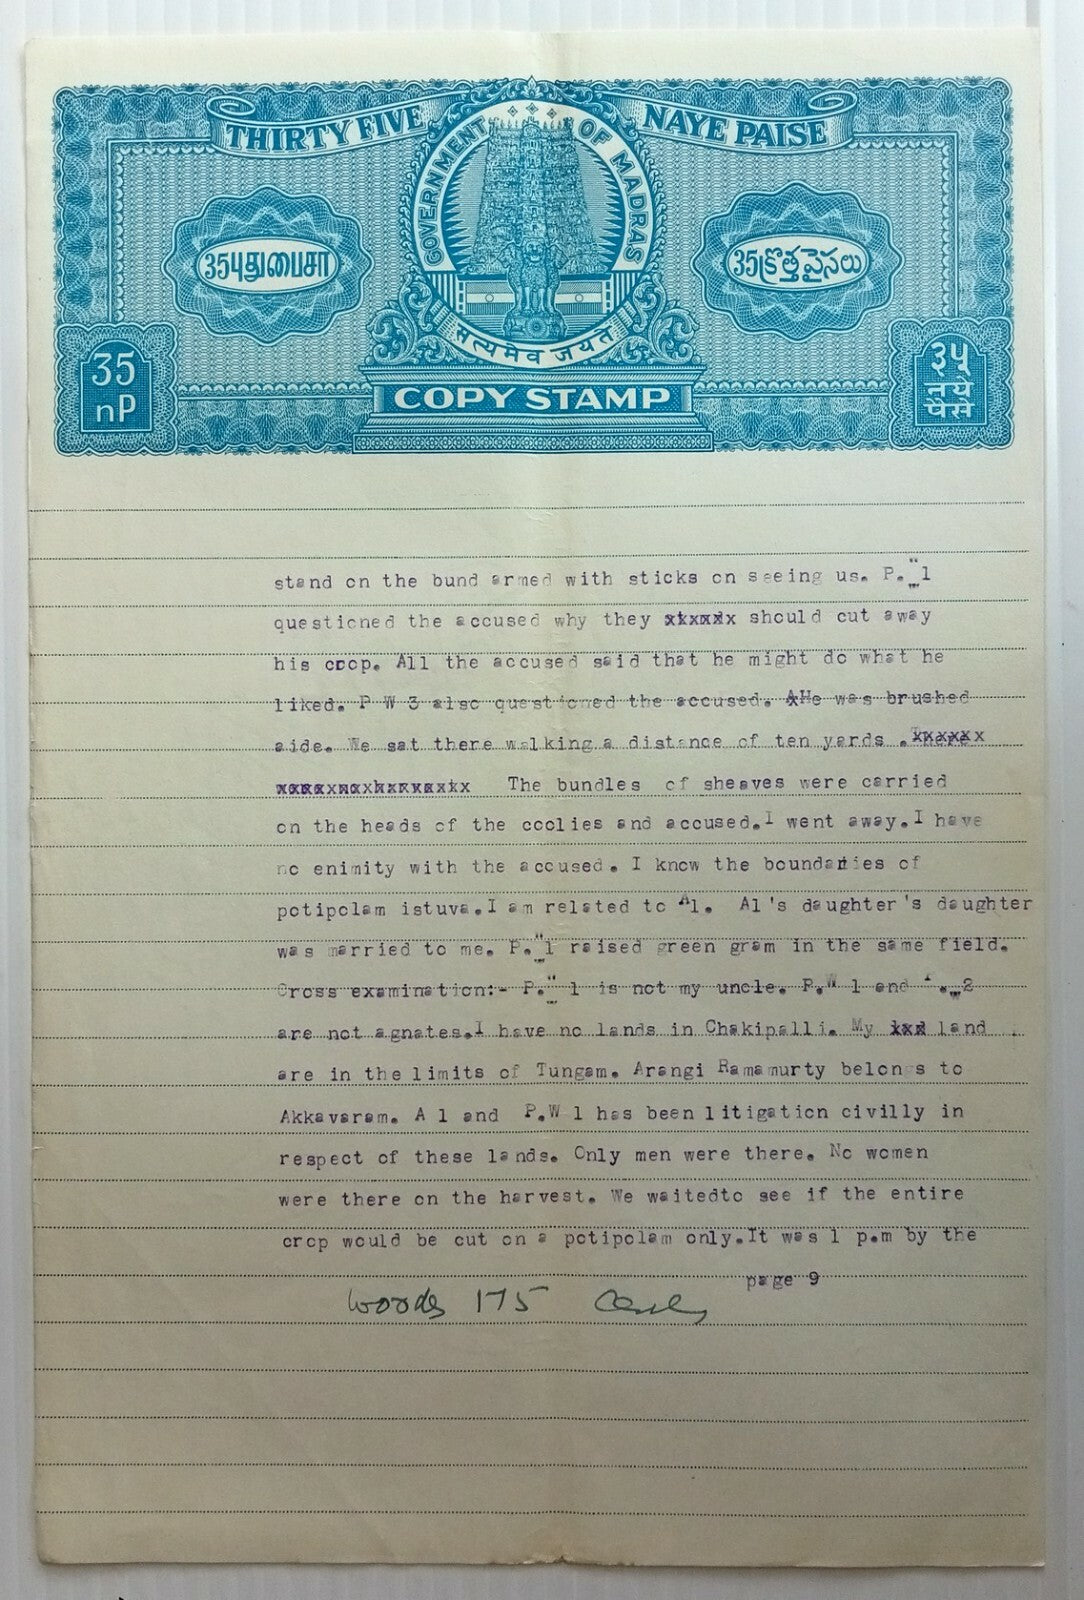 THIRTY FIVE NAYE PAISE
GOVERNMENT OF MADRAS
35 புதுபைசா
35 క్రొత్తపైసలు
सत्यमेव जयते
35 nP
३५ नये पैसे
COPY STAMP
stand on the bund armed with sticks on seeing us. P.W 1
questioned the accused why they should cut away
his crop. All the accused said that he might do what he
liked. P W 3 also questioned the accused. He was brushed
aide. We sat there walking a distance of ten yards .
The bundles of sheaves were carried
on the heads of the coolies and accused.I went away.I have
no enimity with the accused. I know the boundaries of
potipolam istuva.I am related to A1. A1's daughter's daughter
was married to me. P.W 1 raised green gram in the same field.
Cross examination:- P.W 1 is not my uncle. P.W 1 and 2
are not agnates.I have no lands in Chakipalli. My land
are in the limits of Tungam. Arangi Ramamurty belongs to
Akkavaram. A 1 and P.W 1 has been litigation civilly in
respect of these lands. Only men were there. No women
were there on the harvest. We waitedto see if the entire
crop would be cut on a potipolam only.It was 1 p.m by the
page 9
Words 175